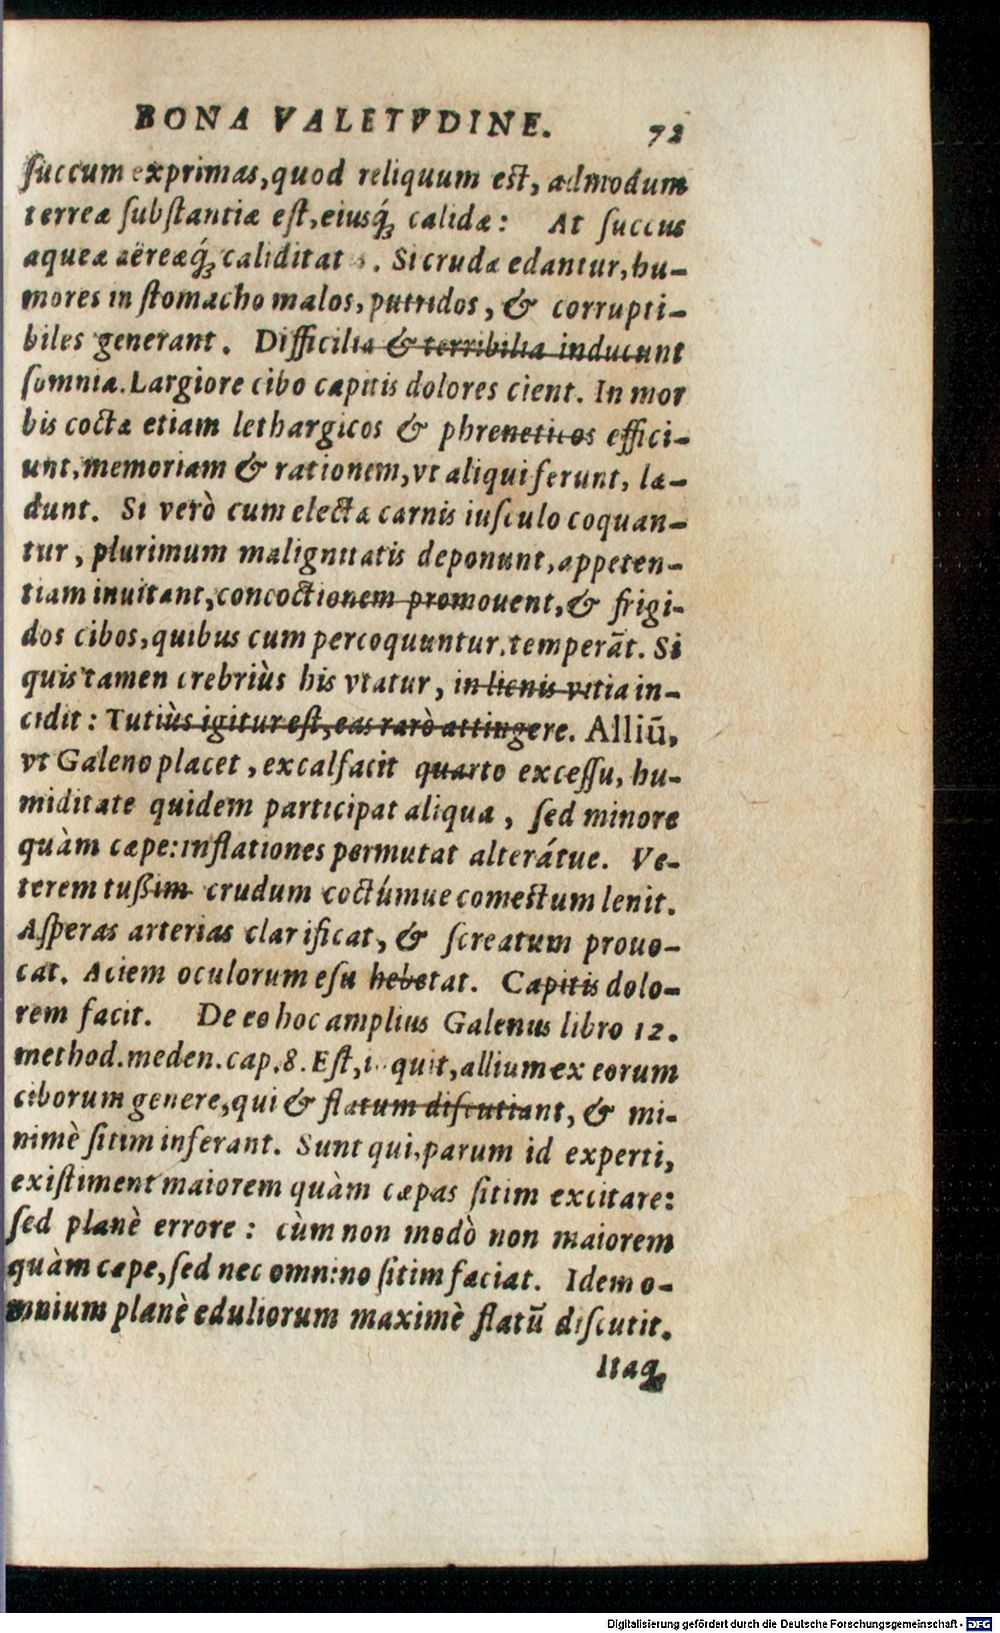 BONA VALETVDINE. 72
succum exprimas, quod reliquum est, admodum
terreæ substantiæ est, eiusq́ꝫ calidæ: At succus
aqueæ aëreæq́ꝫ caliditat s. Si cruda edantur, hu-
mores in stomacho malos, putridos, & corrupti-
biles generant. Difficilia & terribilia inducunt
somnia. Largiore cibo capitis dolores cient. In mor
bis cocta etiam lethargicos & phreneticos effici-
unt, memoriam & rationem, vt aliqui ferunt, læ-
dunt. Si verò cum electa carnis iusculo coquan-
tur, plurimum malignitatis deponunt, appeten-
tiam inuitant, concoctionem promouent, & frigi-
dos cibos, quibus cum percoquuntur, temperāt. Si
quis tamen crebriùs his vtatur, in lienis vitia in-
cidit: Tutiùs igitur est, eas rarò attingere. Alliū,
vt Galeno placet, excalfacit quarto excessu, hu-
miditate quidem participat aliqua, sed minore
quàm cæpe: inflationes permutat alterátue. Ve-
terem tußim crudum coctúmue comestum lenit.
Asperas arterias clarificat, & screatum prouo-
cat. Aciem oculorum esu hebetat. Capitis dolo-
rem facit. De eo hoc amplius Galenus libro 12.
method. meden. cap. 8. Est, i quit, allium ex eorum
ciborum genere, qui & flatum discutiant, & mi-
nimè sitim inferant. Sunt qui, parum id experti,
existiment maiorem quàm cæpas sitim excitare:
sed planè errore: cùm non modò non maiorem
quàm cæpe, sed nec omnino sitim faciat. Idem o-
mnium planè eduliorum maximè flatū discutit.
Itaqꝫ
Digitalisierung gefördert durch die Deutsche Forschungsgemeinschaft - DFG